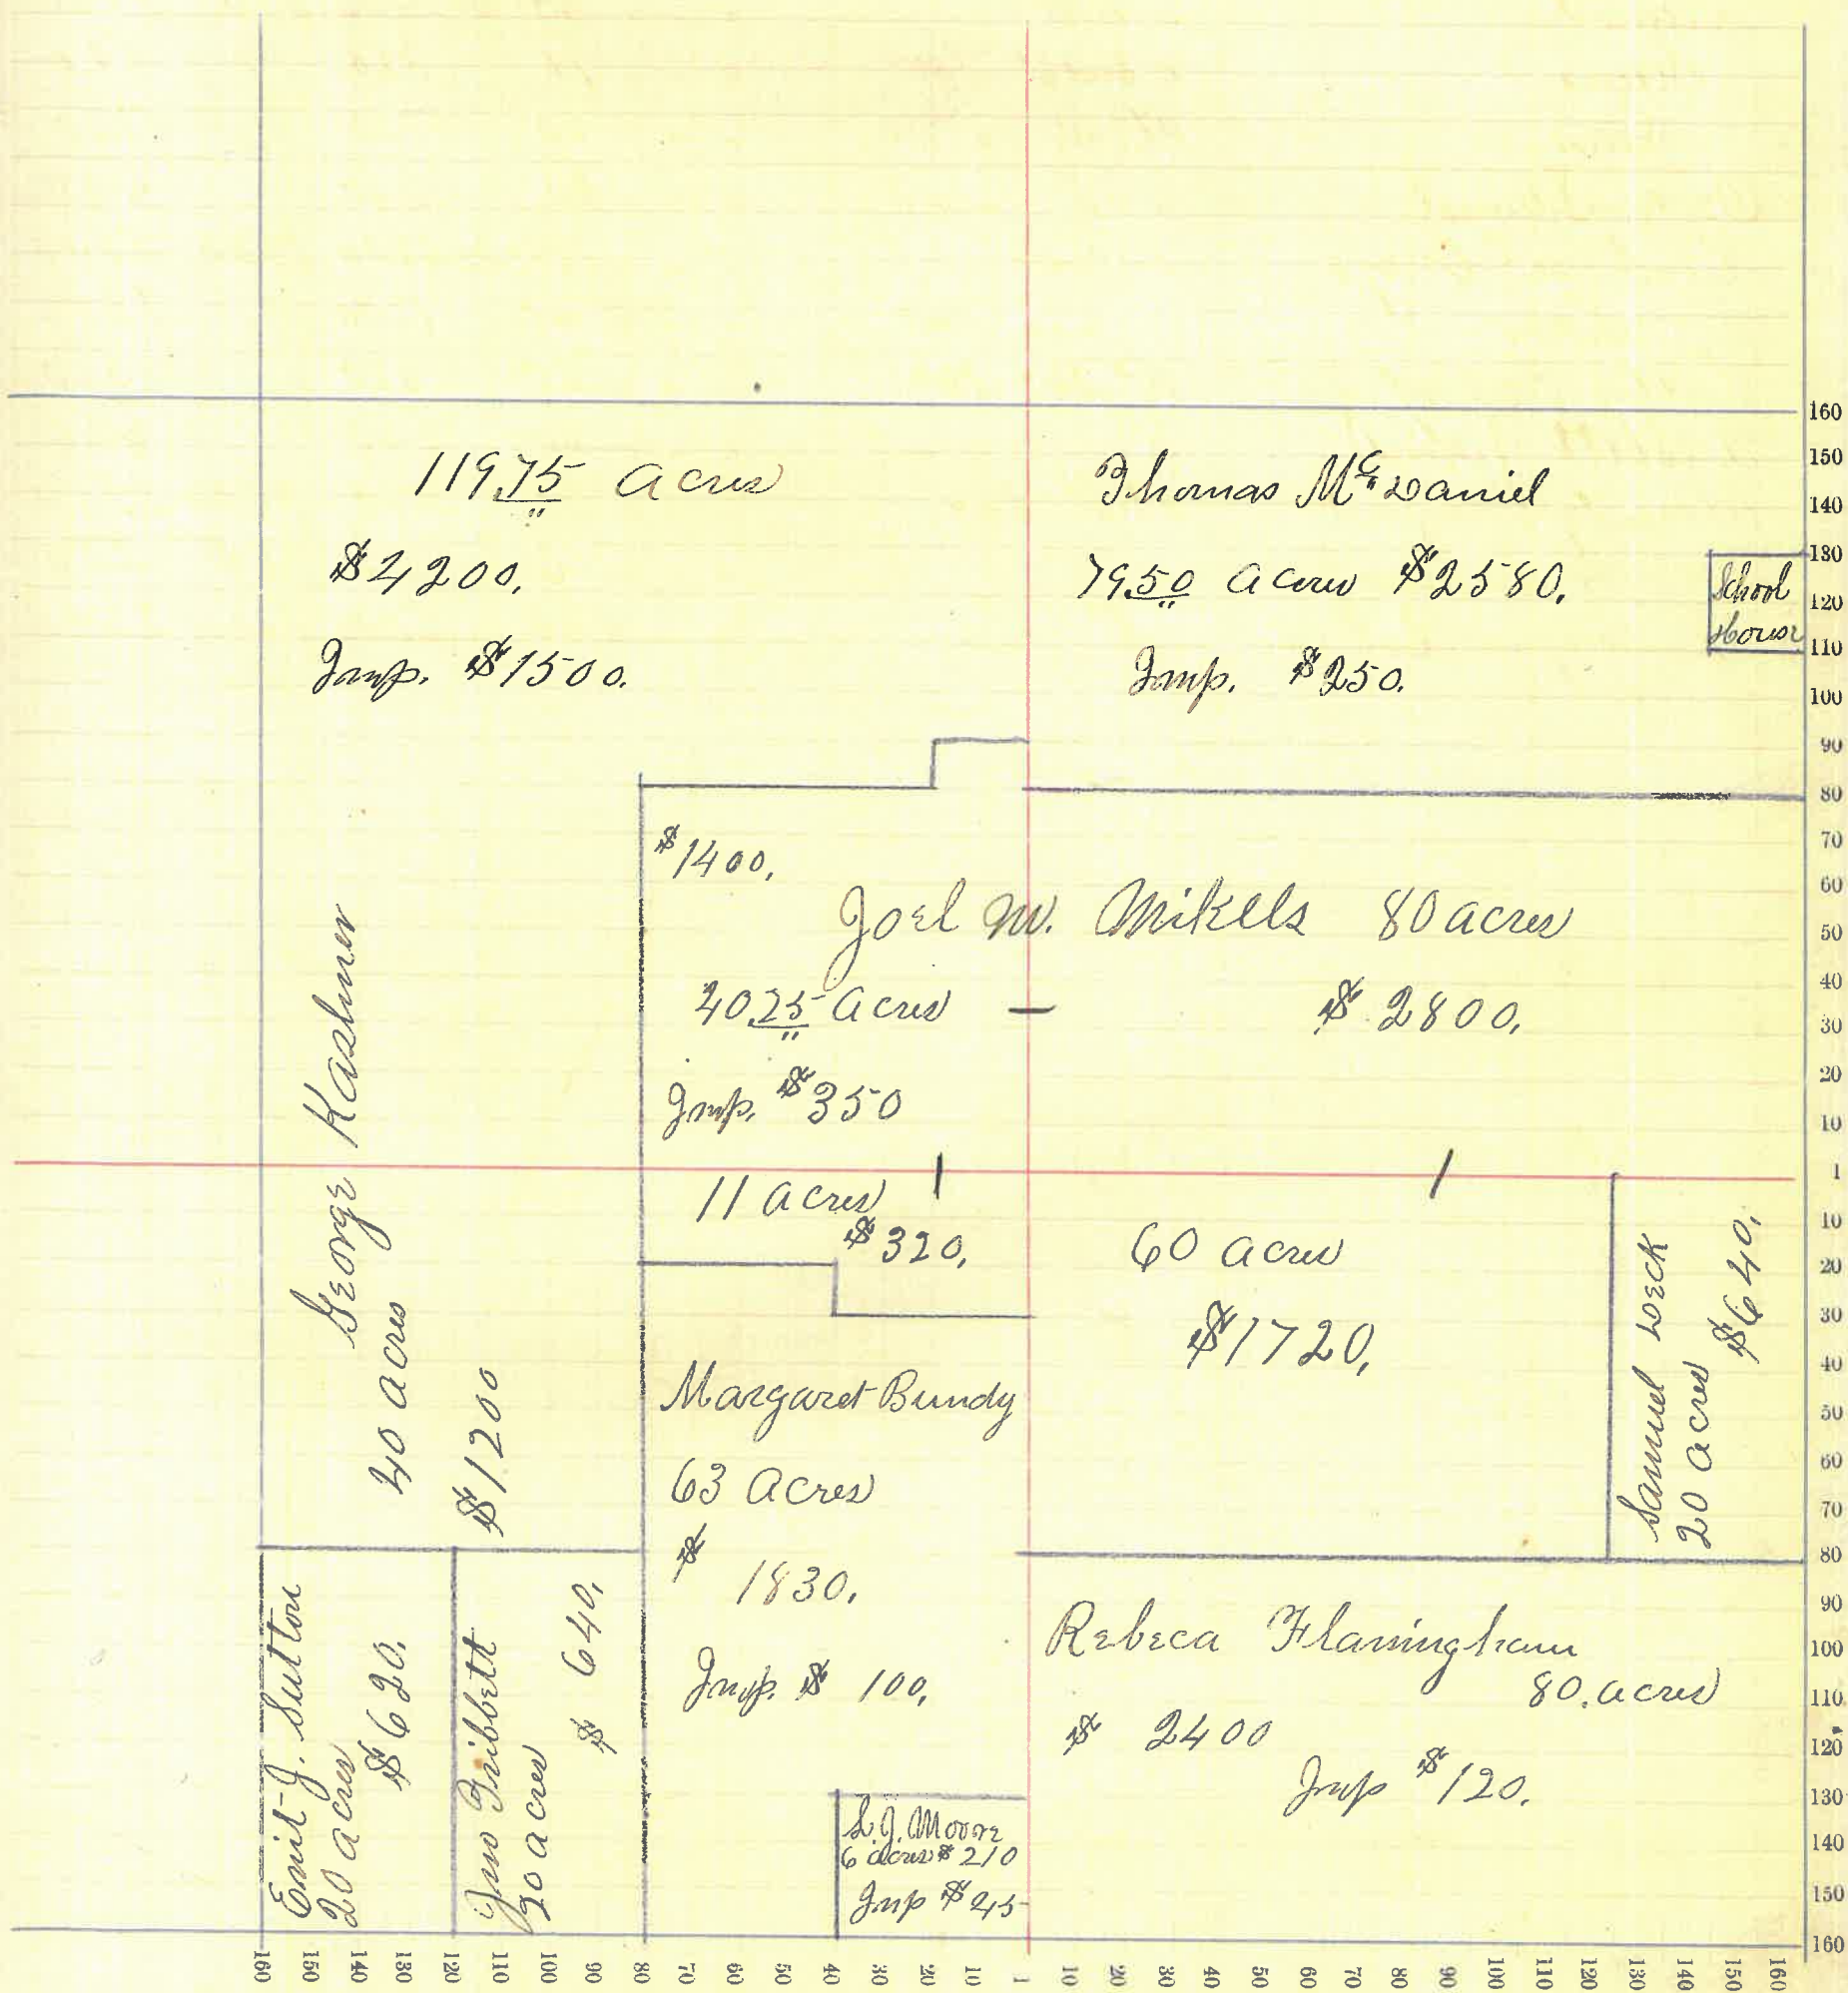 119.75 Acres
$4200.
Imp. $1500.
Thomas McDaniel
79.50 Acres $2580.
Imp. $250.
School
House
George Kashner
40 acres
$1200
$1400.
Joel M. Mikels 80 acres
40.25 Acres
$2800.
Imp. $350
11 acres
$320.
60 acres
$1720.
Samuel Weck
20 acres
$640.
Margaret Bundy
63 Acres
$1830.
Imp. $100.
Emit J. Sutton
20 acres
$620.
Jno Tribbett
20 acres
$640.
S. J. Moore
6 acres $210
Imp $45
Rebeca Flaningham
80. acres
$2400
Imp $120.
160
150
140
130
120
110
100
90
80
70
60
50
40
30
20
10
1
10
20
30
40
50
60
70
80
90
100
110
120
130
140
150
160
160 150 140 130 120 110 100 90 80 70 60 50 40 30 20 10 1 10 20 30 40 50 60 70 80 90 100 110 120 130 140 150 160